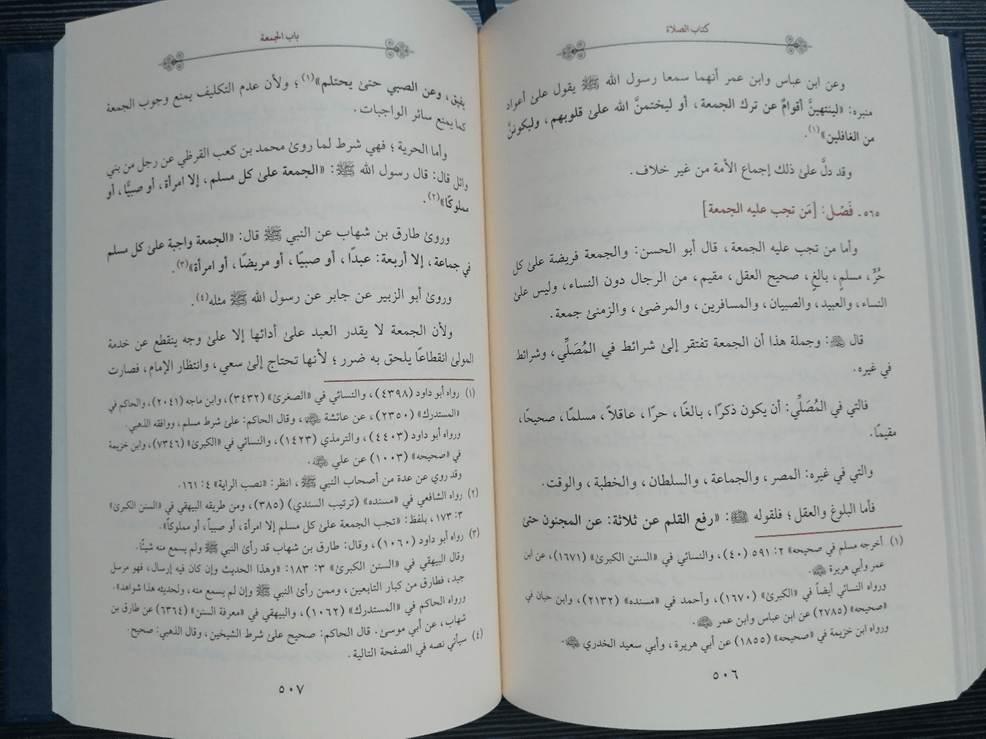 كتاب الصلاة
وعن ابن عباس وابن عمر أنهما سمعا رسول الله ﷺ يقول على أعواد
منبره: «لينتهينَّ أقوامٌ عن ترك الجمعة، أو ليختمنَّ الله على قلوبهم، وليكوننَّ
من الغافلين»(١).
وقد دلَّ على ذلك إجماع الأمة من غير خلاف.
٥٦٥ - فَصْل: [مَن تجب عليه الجمعة]
وأما من تجب عليه الجمعة، قال أبو الحسن: والجمعة فريضة على كل
حُرٍّ، مسلمٍ، بالغٍ، صحيح العقل، مقيم، من الرجال دون النساء، وليس على
النساء، والعبيد، والصبيان، والمسافرين، والمرضى، والزمنى جمعة.
قال: وجملة هذا أن الجمعة تفتقر إلى شرائط في المُصَلِّي، وشرائط
في غيره.
فالتي في المُصَلِّي: أن يكون ذكرًا، بالغًا، حرًا، عاقلاً، مسلمًا، صحيحًا،
مقيمًا.
والتي في غيره: المصر، والجماعة، والسلطان، والخطبة، والوقت.
فأما البلوغ والعقل؛ فلقوله ﷺ: «رفع القلم عن ثلاثة: عن المجنون حتى
(١) أخرجه مسلم في صحيحه» ٢: ٥٩١ (٤٠)، والنسائي في «السنن الكبرى» (١٦٧١)، عن ابن
عمر وأبي هريرة.
ورواه النسائي أيضاً في «الكبرى» (١٦٧٠)، وأحمد في «مسنده» (٢١٣٢)، وابن حبان في
«صحيحه» (٢٧٨٥) عن ابن عباس وابن عمر.
ورواه ابن خزيمة في «صحيحه» (١٨٥٥) عن أبي هريرة، وأبي سعيد الخدري.
٥٠٦
باب الجمعة
يفيق، وعن الصبي حتى يحتلم»(١)؛ ولأن عدم التكليف يمنع وجوب الجمعة
كما يمنع سائر الواجبات.
وأما الحرية؛ فهي شرط لما روى محمد بن كعب القرظي عن رجل من بني
وائل قال: قال رسول الله ﷺ: «الجمعة على كل مسلم، إلا امرأة، أو صبيًّا، أو
مملوكًا»(٢).
وروى طارق بن شهاب عن النبي ﷺ قال: «الجمعة واجبة على كل مسلم
في جماعة، إلا أربعة: عبدًا، أو صبيًا، أو مريضًا، أو امرأة»(٣).
وروى أبو الزبير عن جابر عن رسول الله ﷺ مثله(٤).
ولأن الجمعة لا يقدر العبد على أدائها إلا على وجه ينقطع عن خدمة
المولى انقطاعًا يلحق به ضرر؛ لأنها تحتاج إلى سعي، وانتظار الإمام، فصارت
(١) رواه أبو داود (٤٣٩٨)، والنسائي في «الصغرى» (٣٤٣٢)، وابن ماجه (٢٠٤١)، والحاكم في
«المستدرك» (٢٣٥٠)، عن عائشة، وقال الحاكم: على شرط مسلم، ووافقه الذهبي.
ورواه أبو داود (٤٤٠٣)، والترمذي (١٤٢٣)، والنسائي في «الكبرى» (٧٣٤٦)، وابن خزيمة
في «صحيحه» (١٠٠٣) عن علي.
وقد روي عن عدة من أصحاب النبي ﷺ، انظر: «نصب الراية» ٤: ١٦١.
(٢) رواه الشافعي في «مسنده» (ترتيب السندي) (٣٨٥)، ومن طريقه البيهقي في «السنن الكبرى»
٣: ١٧٣، بلفظ: «تجب الجمعة على كل مسلم إلا امرأة، أو صبياً، أو مملوكاً».
(٣) رواه أبو داود (١٠٦٠)، وقال: طارق بن شهاب قد رأى النبي ﷺ ولم يسمع منه شيئًا.
وقال البيهقي في «السنن الكبرى» ٣: ١٨٣: «وهذا الحديث وإن كان فيه إرسال، فهو مرسل
جيد، فطارق من كبار التابعين، وممن رأى النبي ﷺ وإن لم يسمع منه، ولحديثه هذا شواهد».
ورواه الحاكم في «المستدرك» (١٠٦٢)، والبيهقي في «معرفة السنن» (٦٣٦٤) عن طارق بن
شهاب، عن أبي موسى. قال الحاكم: صحيح على شرط الشيخين، وقال الذهبي: صحيح.
(٤) سيأتي نصه في الصفحة التالية.
٥٠٧